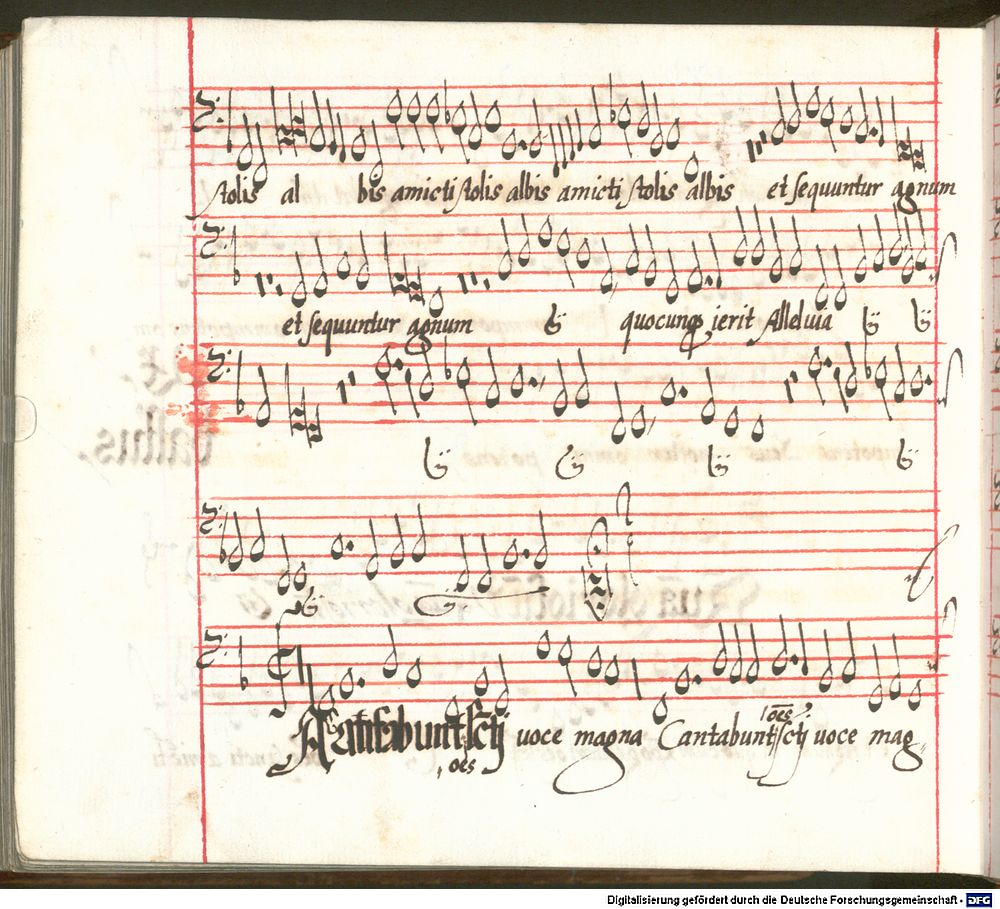 stolis al bis amicti stolis albis amicti stolis albis et sequuntur agnum
et sequuntur agnum ij quocunq ierit Alleluia ij ij
ij ij ij ij
ij
Cantabunt scti uoce magna Cantabunt scti uoce mag
oes oes
Digitalisierung gefördert durch die Deutsche Forschungsgemeinschaft - DFG